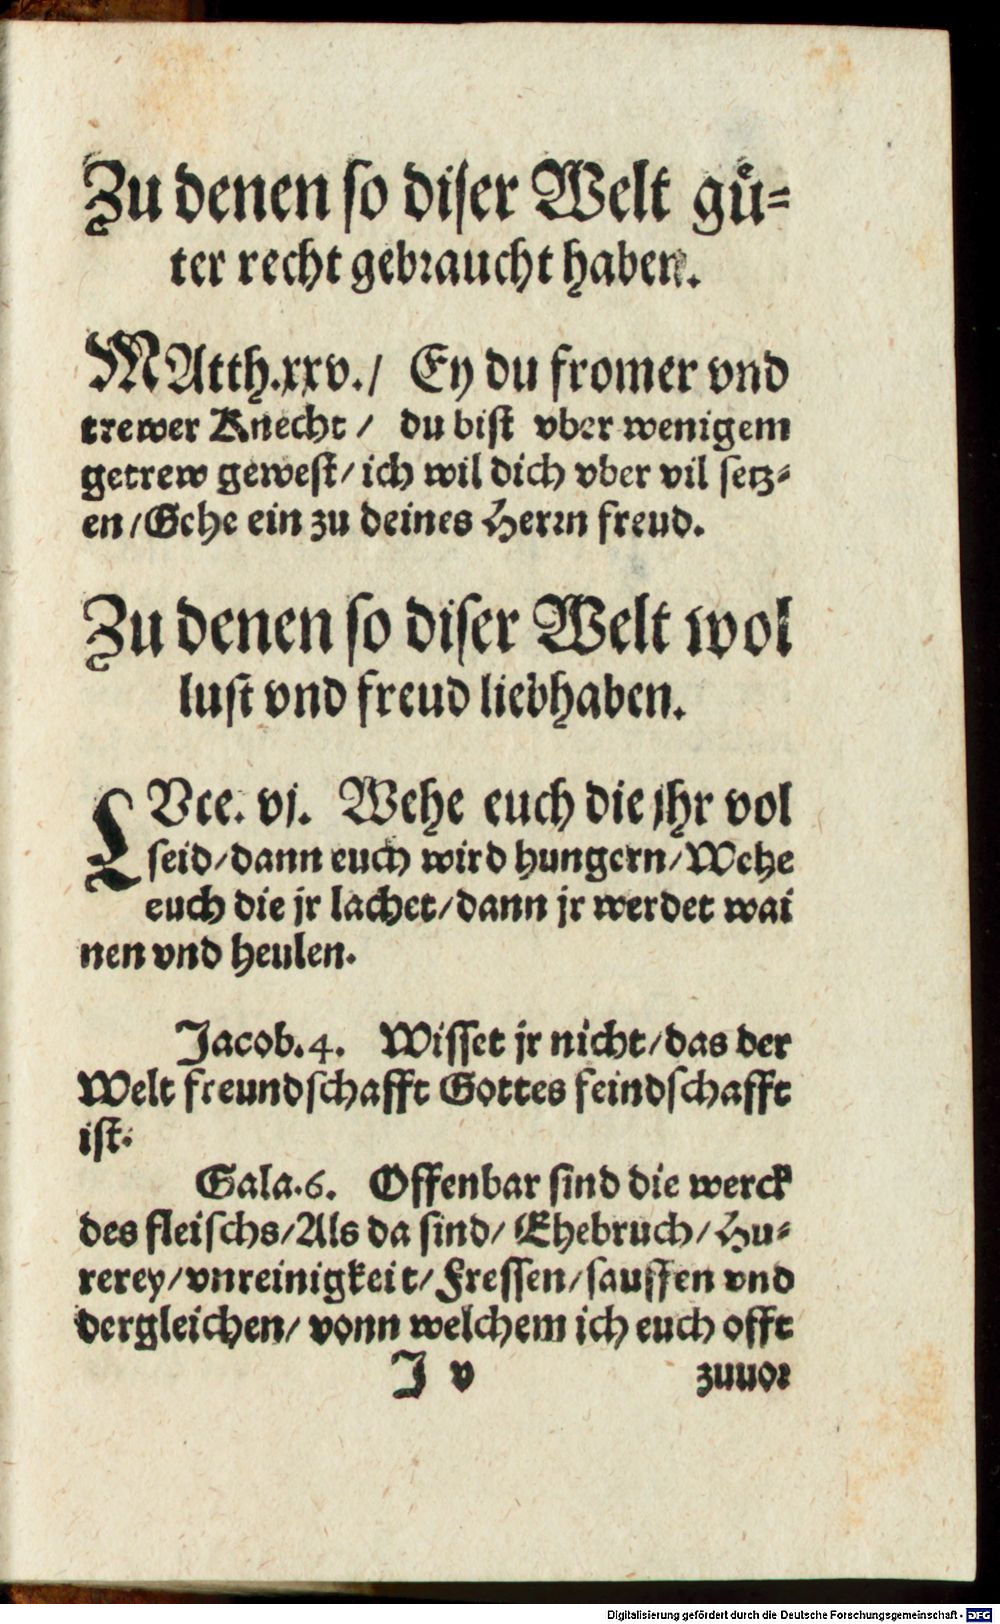 Zu denen so diser Welt guͤ-
ter recht gebraucht haben.
MAtth.xxv./ Ey du fromer vnd
trewer Knecht / du bist vber wenigem
getrew gewest/ ich wil dich vber vil setz-
en/Gehe ein zu deines Herrn freud.
Zu denen so diser Welt wol
lust vnd freud liebhaben.
LVce. vj. Wehe euch die jhr vol
seid/dann euch wird hungern/Wehe
euch die jr lachet/dann jr werdet wai
nen vnd heulen.
Jacob.4. Wisset jr nicht/das der
Welt freundschafft Gottes feindschafft
ist.
Gala.6. Offenbar sind die werck
des fleischs/Als da sind/ Ehebruch/Hu-
rerey/vnreinigkeit/Fressen/sauffen vnd
dergleichen/ vonn welchem ich euch offt
J v zuuor
Digitalisierung gefördert durch die Deutsche Forschungsgemeinschaft - DFG